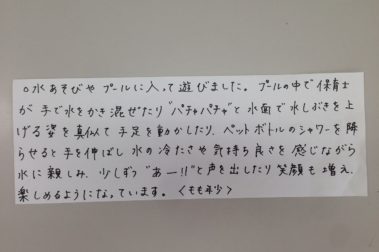 ○水あそびや プールに入って遊びました。プールの中で保育士
が 手で水をかき混ぜたり "パチャパチャ"と 水面で水しぶきを上
げる姿を真似て 手足を動かしたり、ペットボトルのシャワーを降
らせると手を伸ばし 水の冷たさや気持ち良さを 感じながら
水に親しみ、少しずつ "あー!!"と声を出したり 笑顔も増え、
楽しめるようになっています。〈もも年少〉